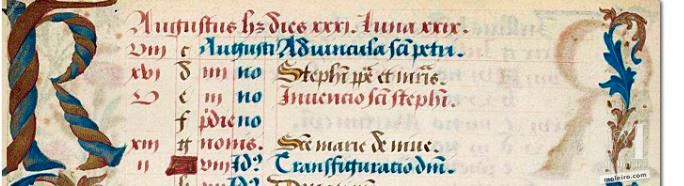 Augustus hz dies xxxi. Luna xxix.
viii c Augusti Ad vincula sci petri.
xvi d iiii no Stephi pe et mris.
v e iii no Invencio sci stephi.
f pdie no
xiii g nonis. Sce marie de nive.
ii viii Id9 Transfiguracio dni.
M
moleiro.com